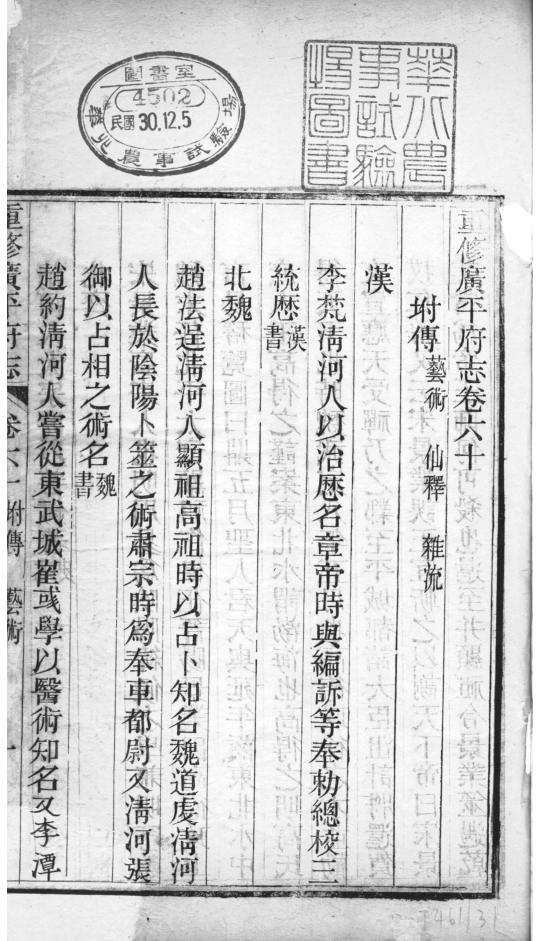 華北農
事試驗
場圖書
圖書室
4502
民國 30.12.5
華北農事試驗場
重修廣平府志卷六十
坿傳 藝術 仙釋 雜流
漢
李梵淸河人以治厯名章帝時與編訢等奉勅總校三
統厯漢書
北魏
趙法逞淸河人顯祖高祖時以占卜知名魏道虔淸河
人長於陰陽卜筮之術肅宗時爲奉車都尉又淸河張
御以占相之術名魏書
趙約淸河人嘗從東武城崔彧學以醫術知名又李潭
重修廣平府志 卷六十 坿傳 藝術 一